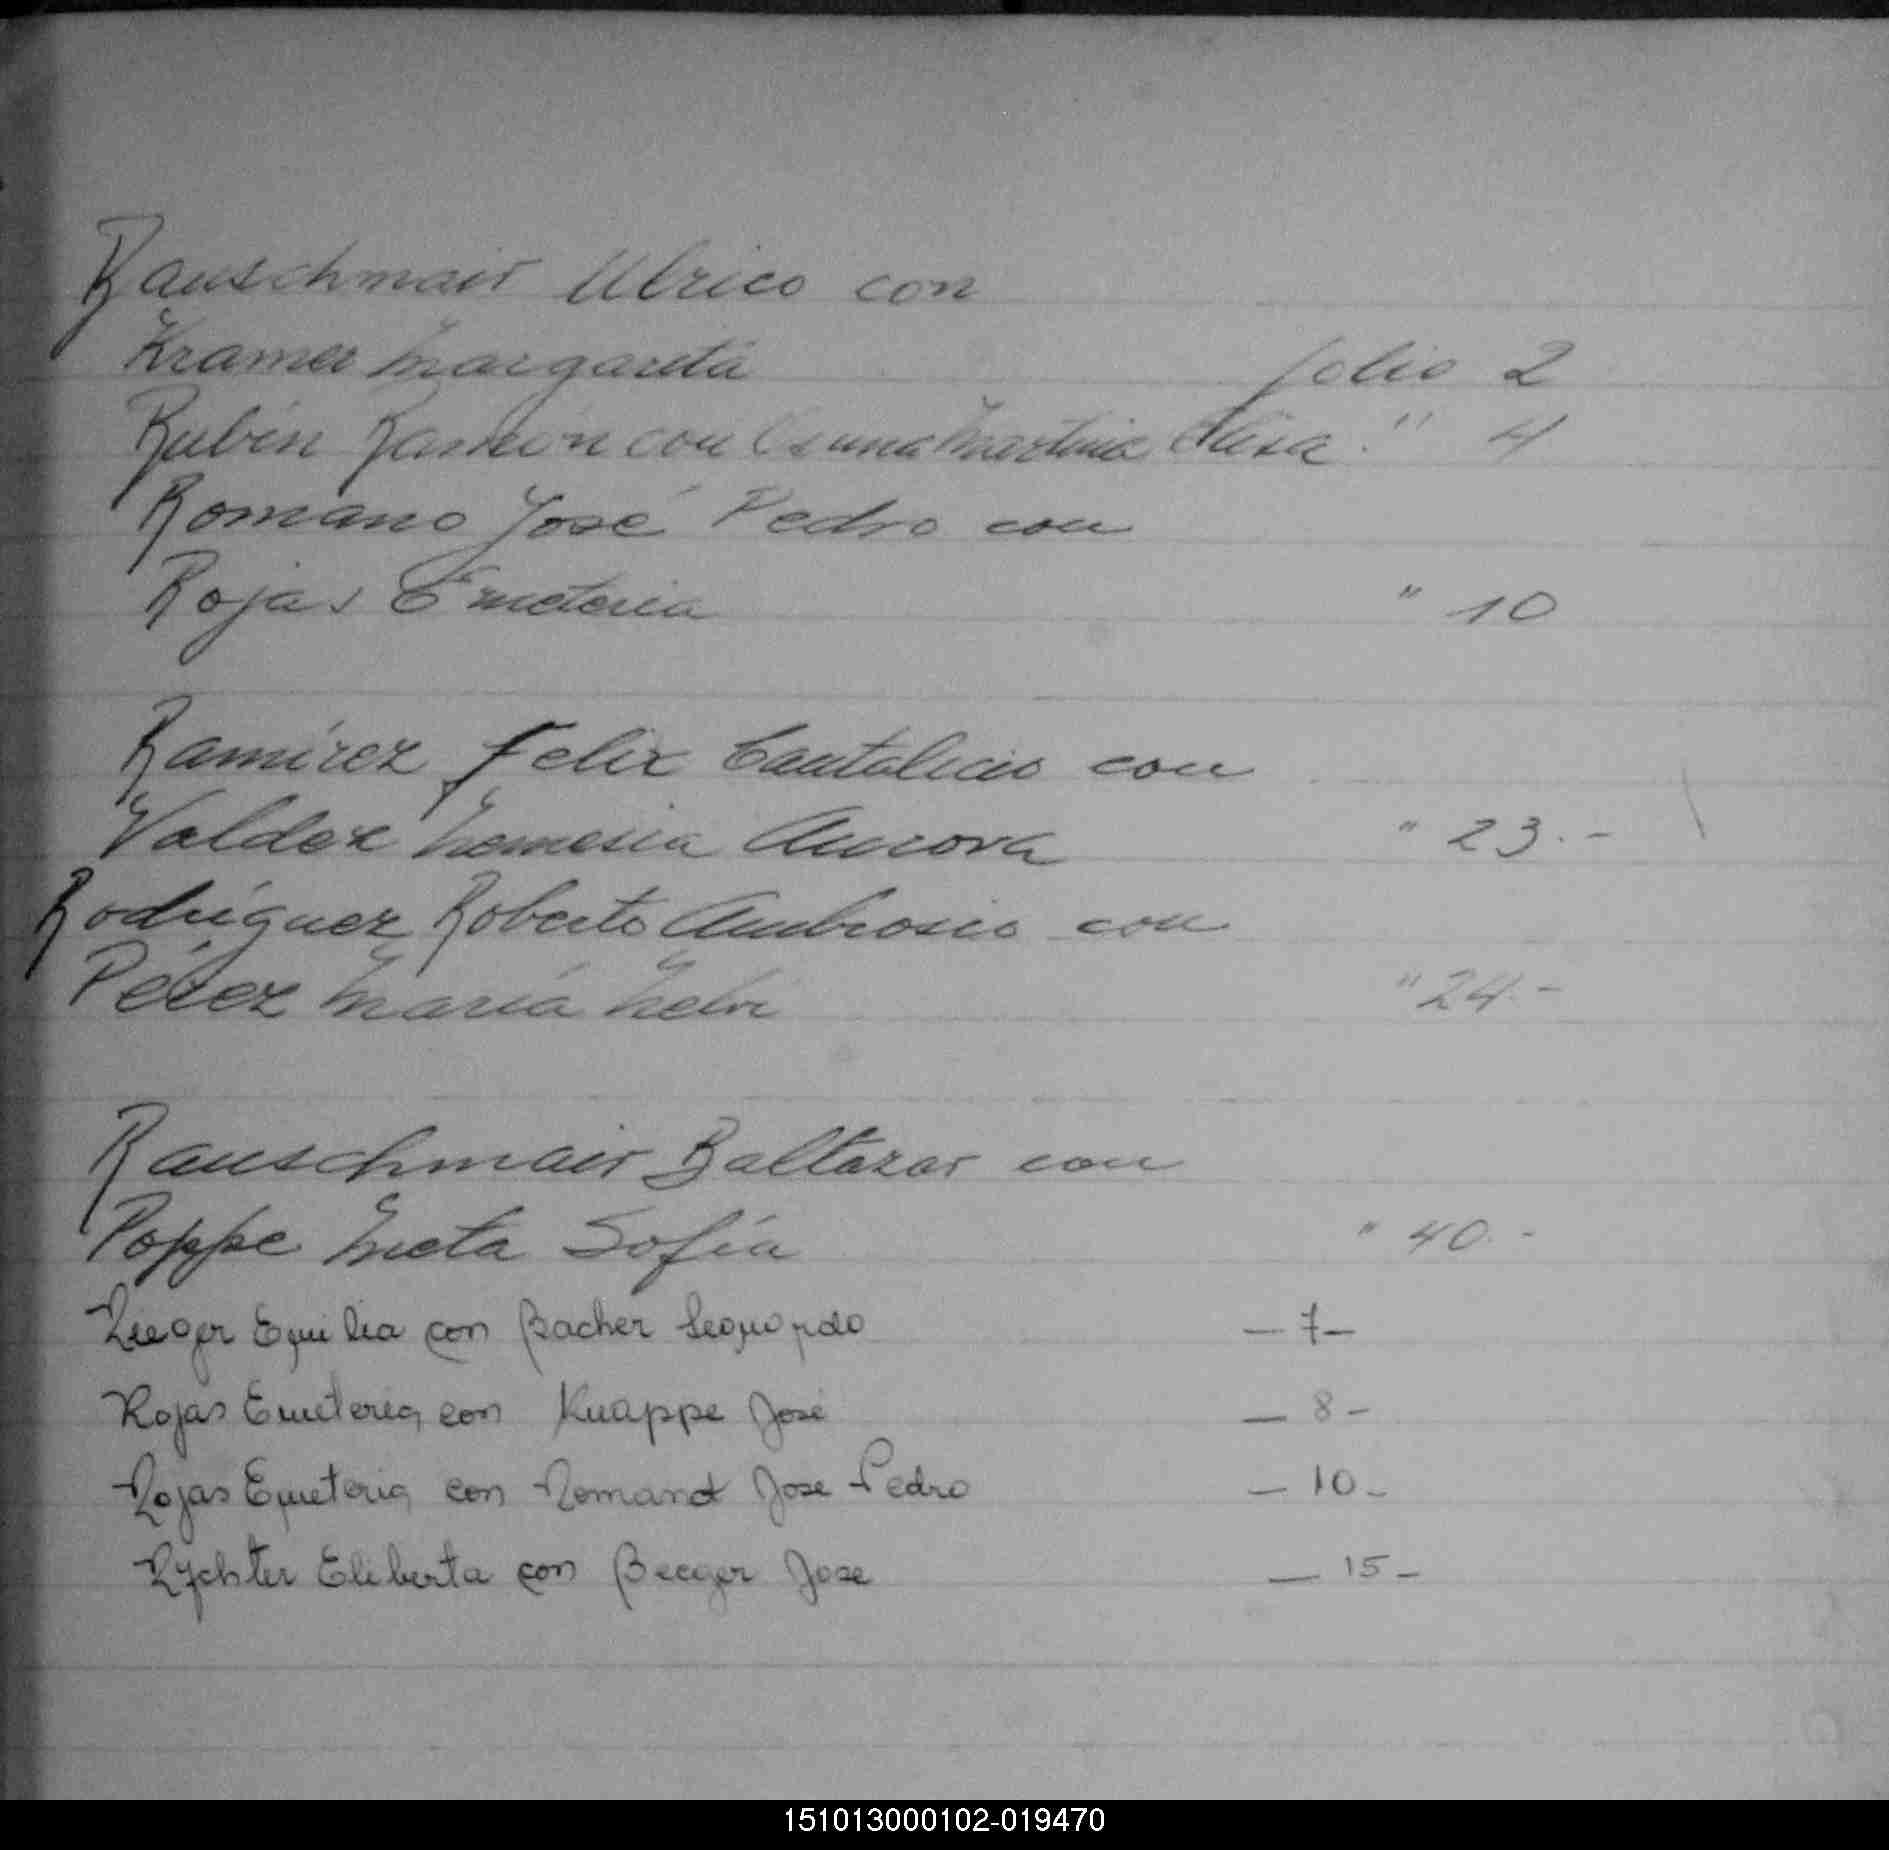 Rauschmair Ulrico con
Kramer Margarita folio 2
Rubín Ramón con Osuna Martina Elisa. " 4
Romano José Pedro con
Rojas Emeteria " 10
Ramírez Felix Cantalicio con
Valdez Nemesia Aurora " 23.-
Rodríguez Roberto Ambrosio con
Pérez María Nelvi " 24.-
Rauschmair Baltazar con
Poppe Meta Sofía " 40.-
Rieger Emilia con Bacher Leopoldo - 7-
Rojas Emeteria con Knappe José - 8-
Rojas Emeteria con Romano Jose Pedro - 10-
Rychter Eliberta con Beeger Jose - 15-
151013000102-019470